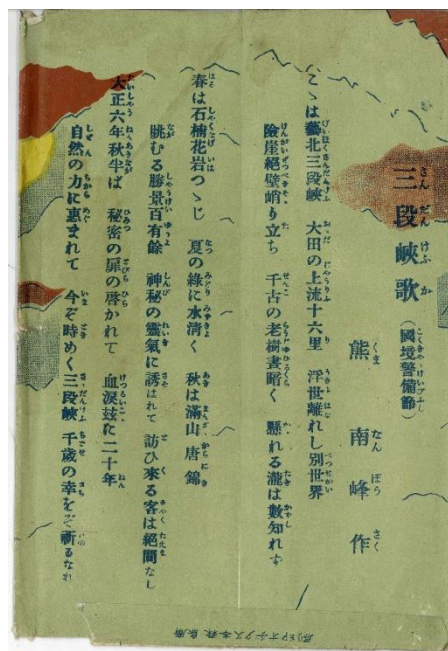 三段峽歌(國境警備節)
熊南峰作
こゝは藝北三段峽 大田の上流十六里 浮世離れし別世界
險崖絕壁峭り立ち 千古の老樹晝暗く 懸れる瀧は數知れず
春は石楠花岩つゝじ 夏の綠に水淸く 秋は滿山唐錦
眺むる勝景百有餘 神秘の靈氣に誘はれて 訪ひ來る客は絕間なし
大正六年秋半ば 秘密の扉の啓かれて 血淚玆に二十年
自然の力に惠まれて 今ぞ時めく三段峽 千歲の幸をぞ祈るなれ